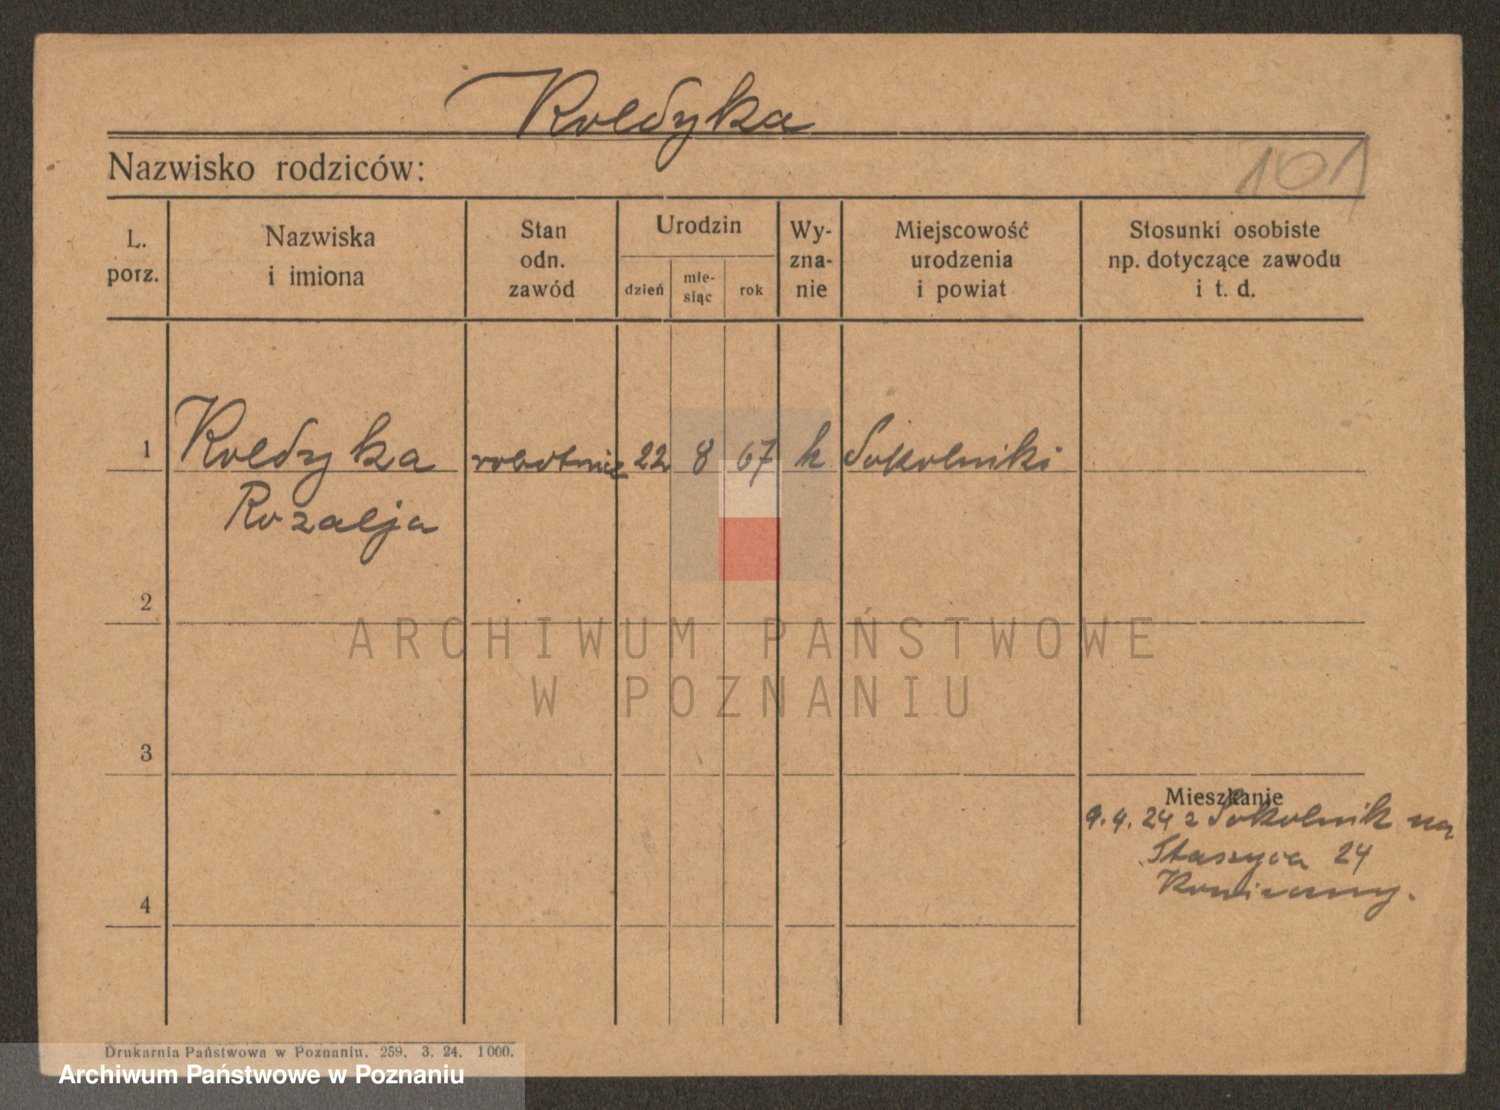 Koldyka
Nazwisko rodziców:
101
L. porz.
Nazwiska i imiona
Stan odn. zawód
Urodzin
dzień
mie-siąc
rok
Wy-zna-nie
Miejscowość urodzenia i powiat
Stosunki osobiste np. dotyczące zawodu i t. d.
1 Koldyka robotnic 22 8 67 k Sokolniki
Rozalja
2
3
4
Mieszkanie
9. 4. 24 z Sokolnik na
Staszyca 24
ARCHIWUM PAŃSTWOWE
W POZNANIU
Drukarnia Państwowa w Poznaniu. 259. 3. 24. 1000.
Archiwum Państwowe w Poznaniu